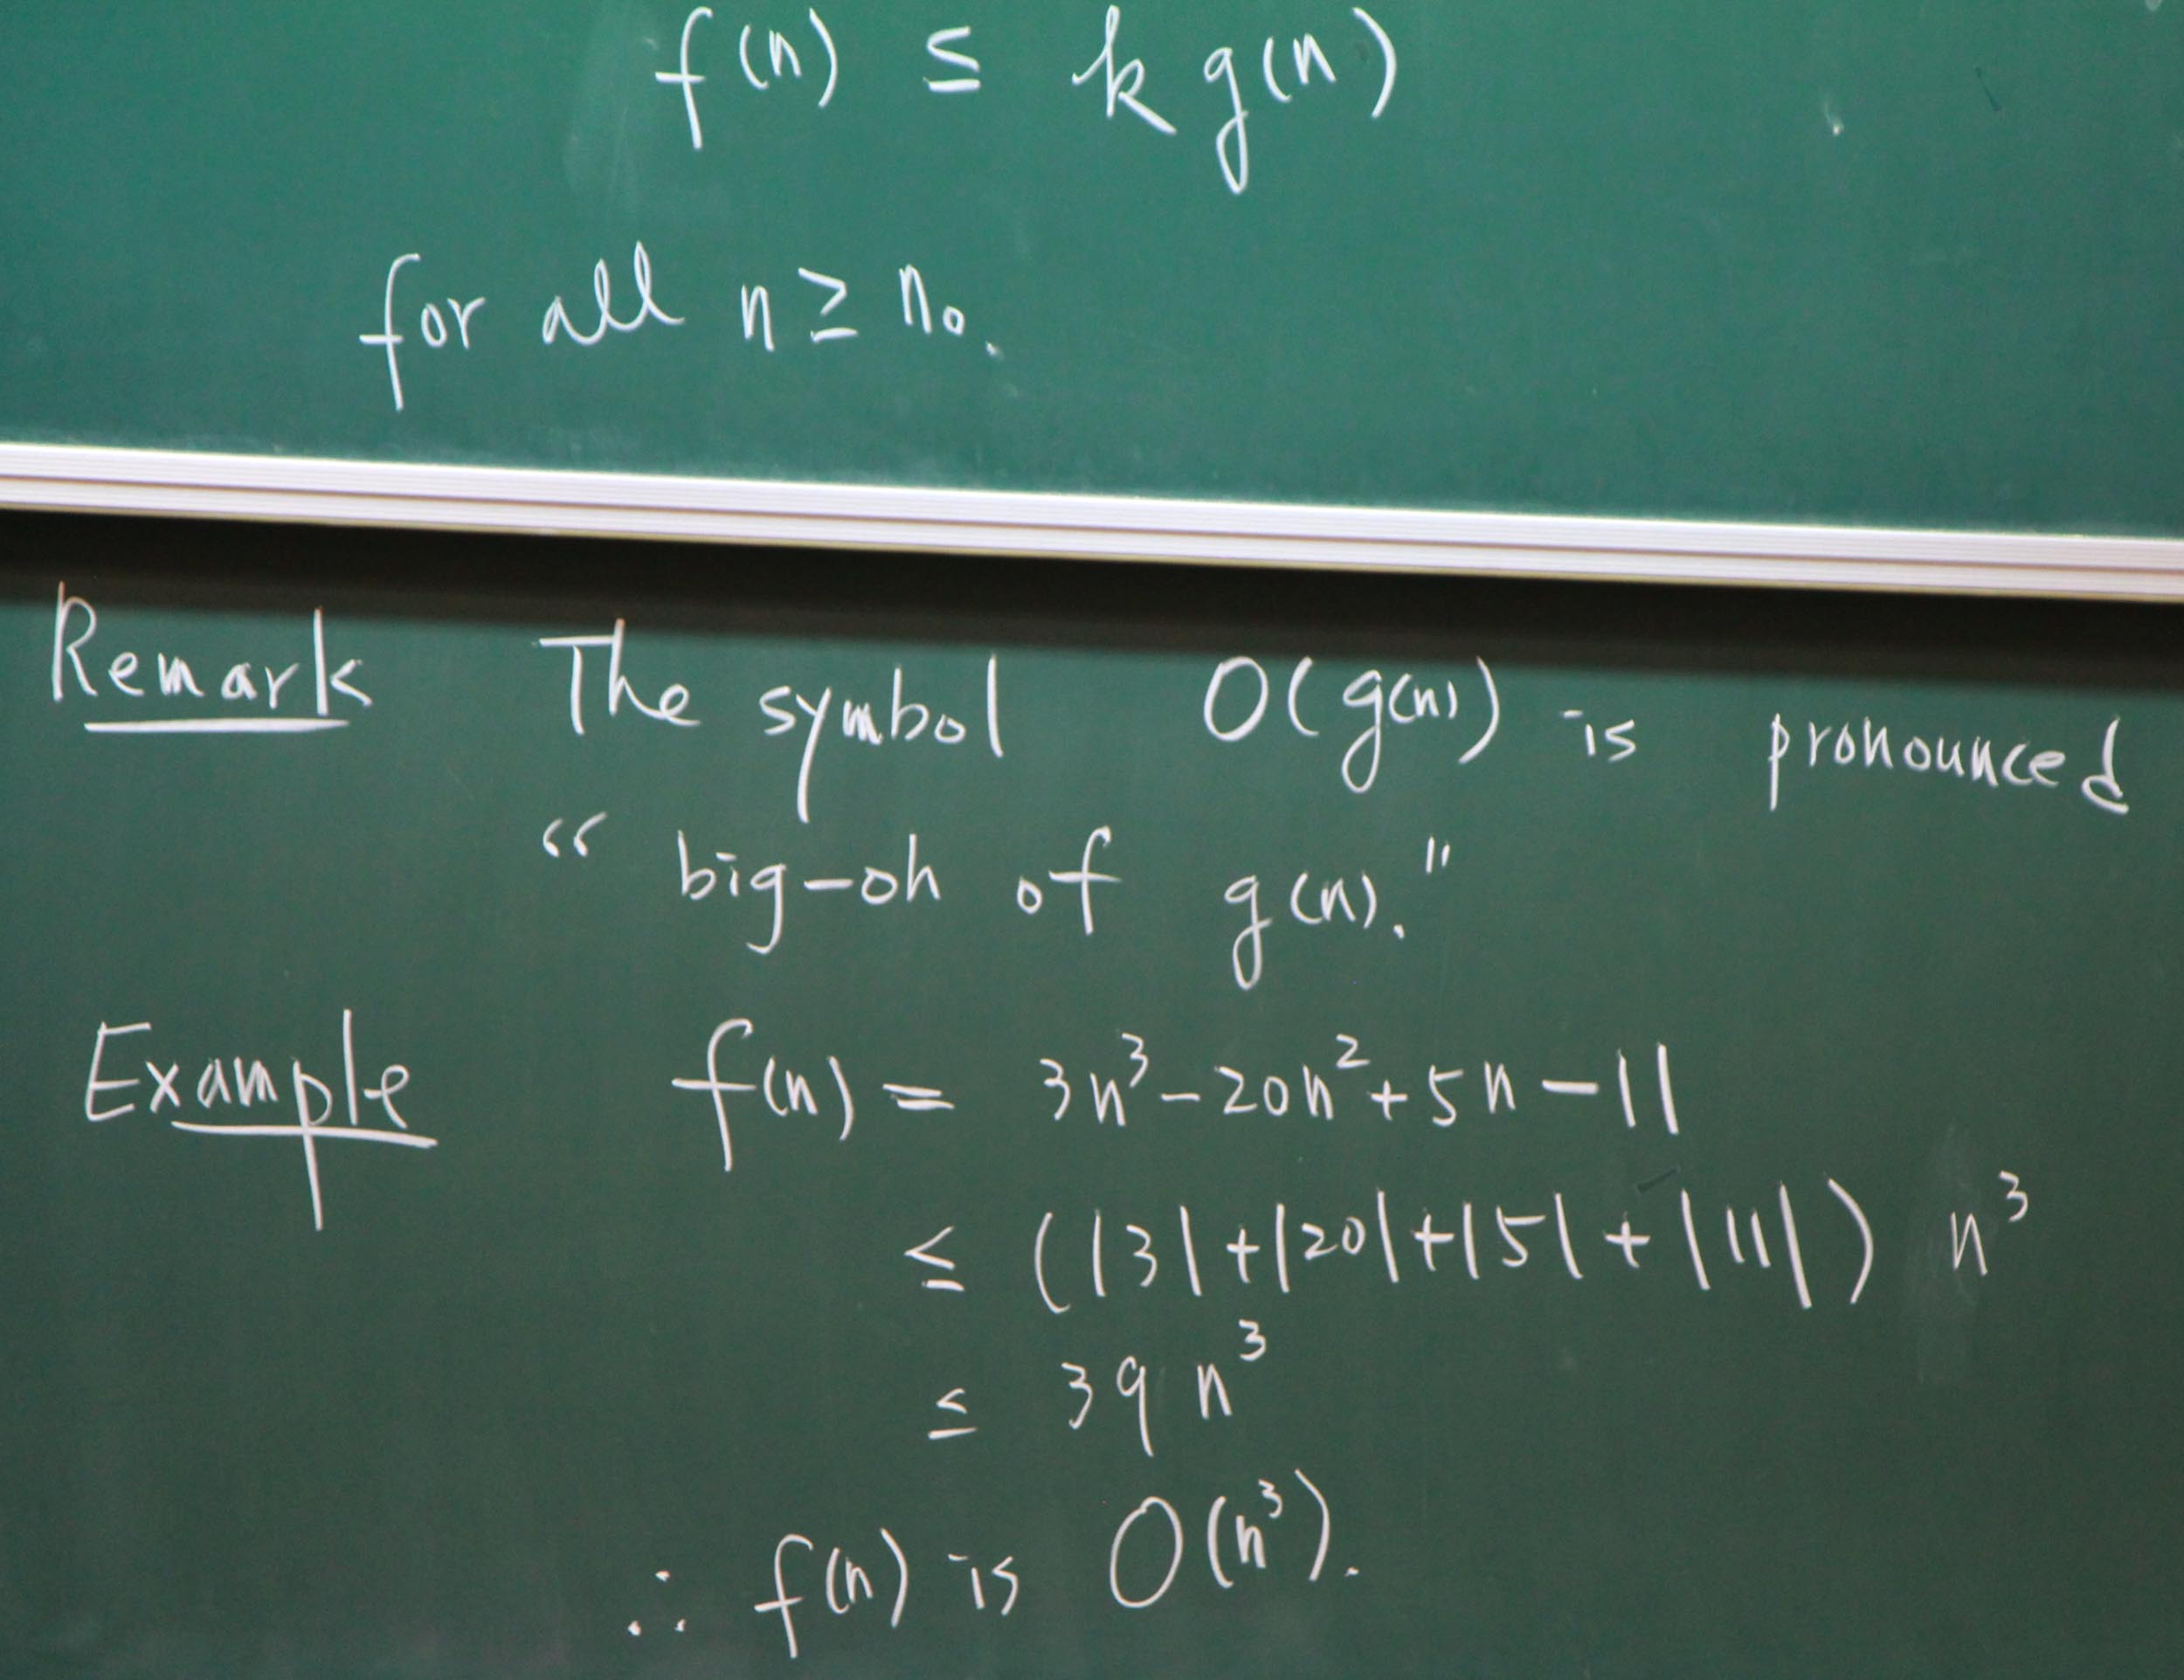 f(n) ≤ k g(n)
for all n ≥ n₀.
Remark The symbol O(g(n)) is pronounced
“ big-oh of g(n).”
Example f(n) = 3n³ - 20n² + 5n - 11
≤ (|3| + |20| + |5| + |11|) n³
≤ 39 n³
∴ f(n) is O(n³).